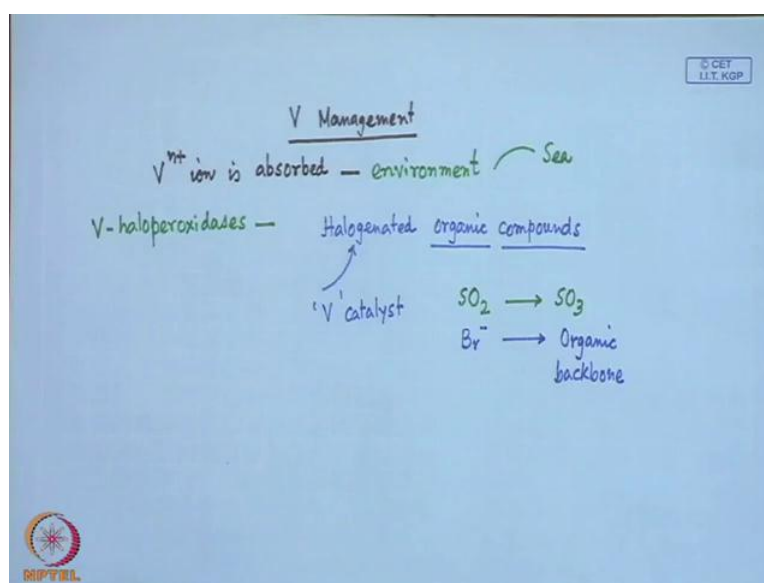 © CET
I.I.T. KGP
V Management
Vⁿ⁺ ion is absorbed — environment Sea
V-haloperoxidases — Halogenated organic compounds
'V' catalyst SO₂ ⟶ SO₃
Br⁻ ⟶ Organic
backbone
NPTEL